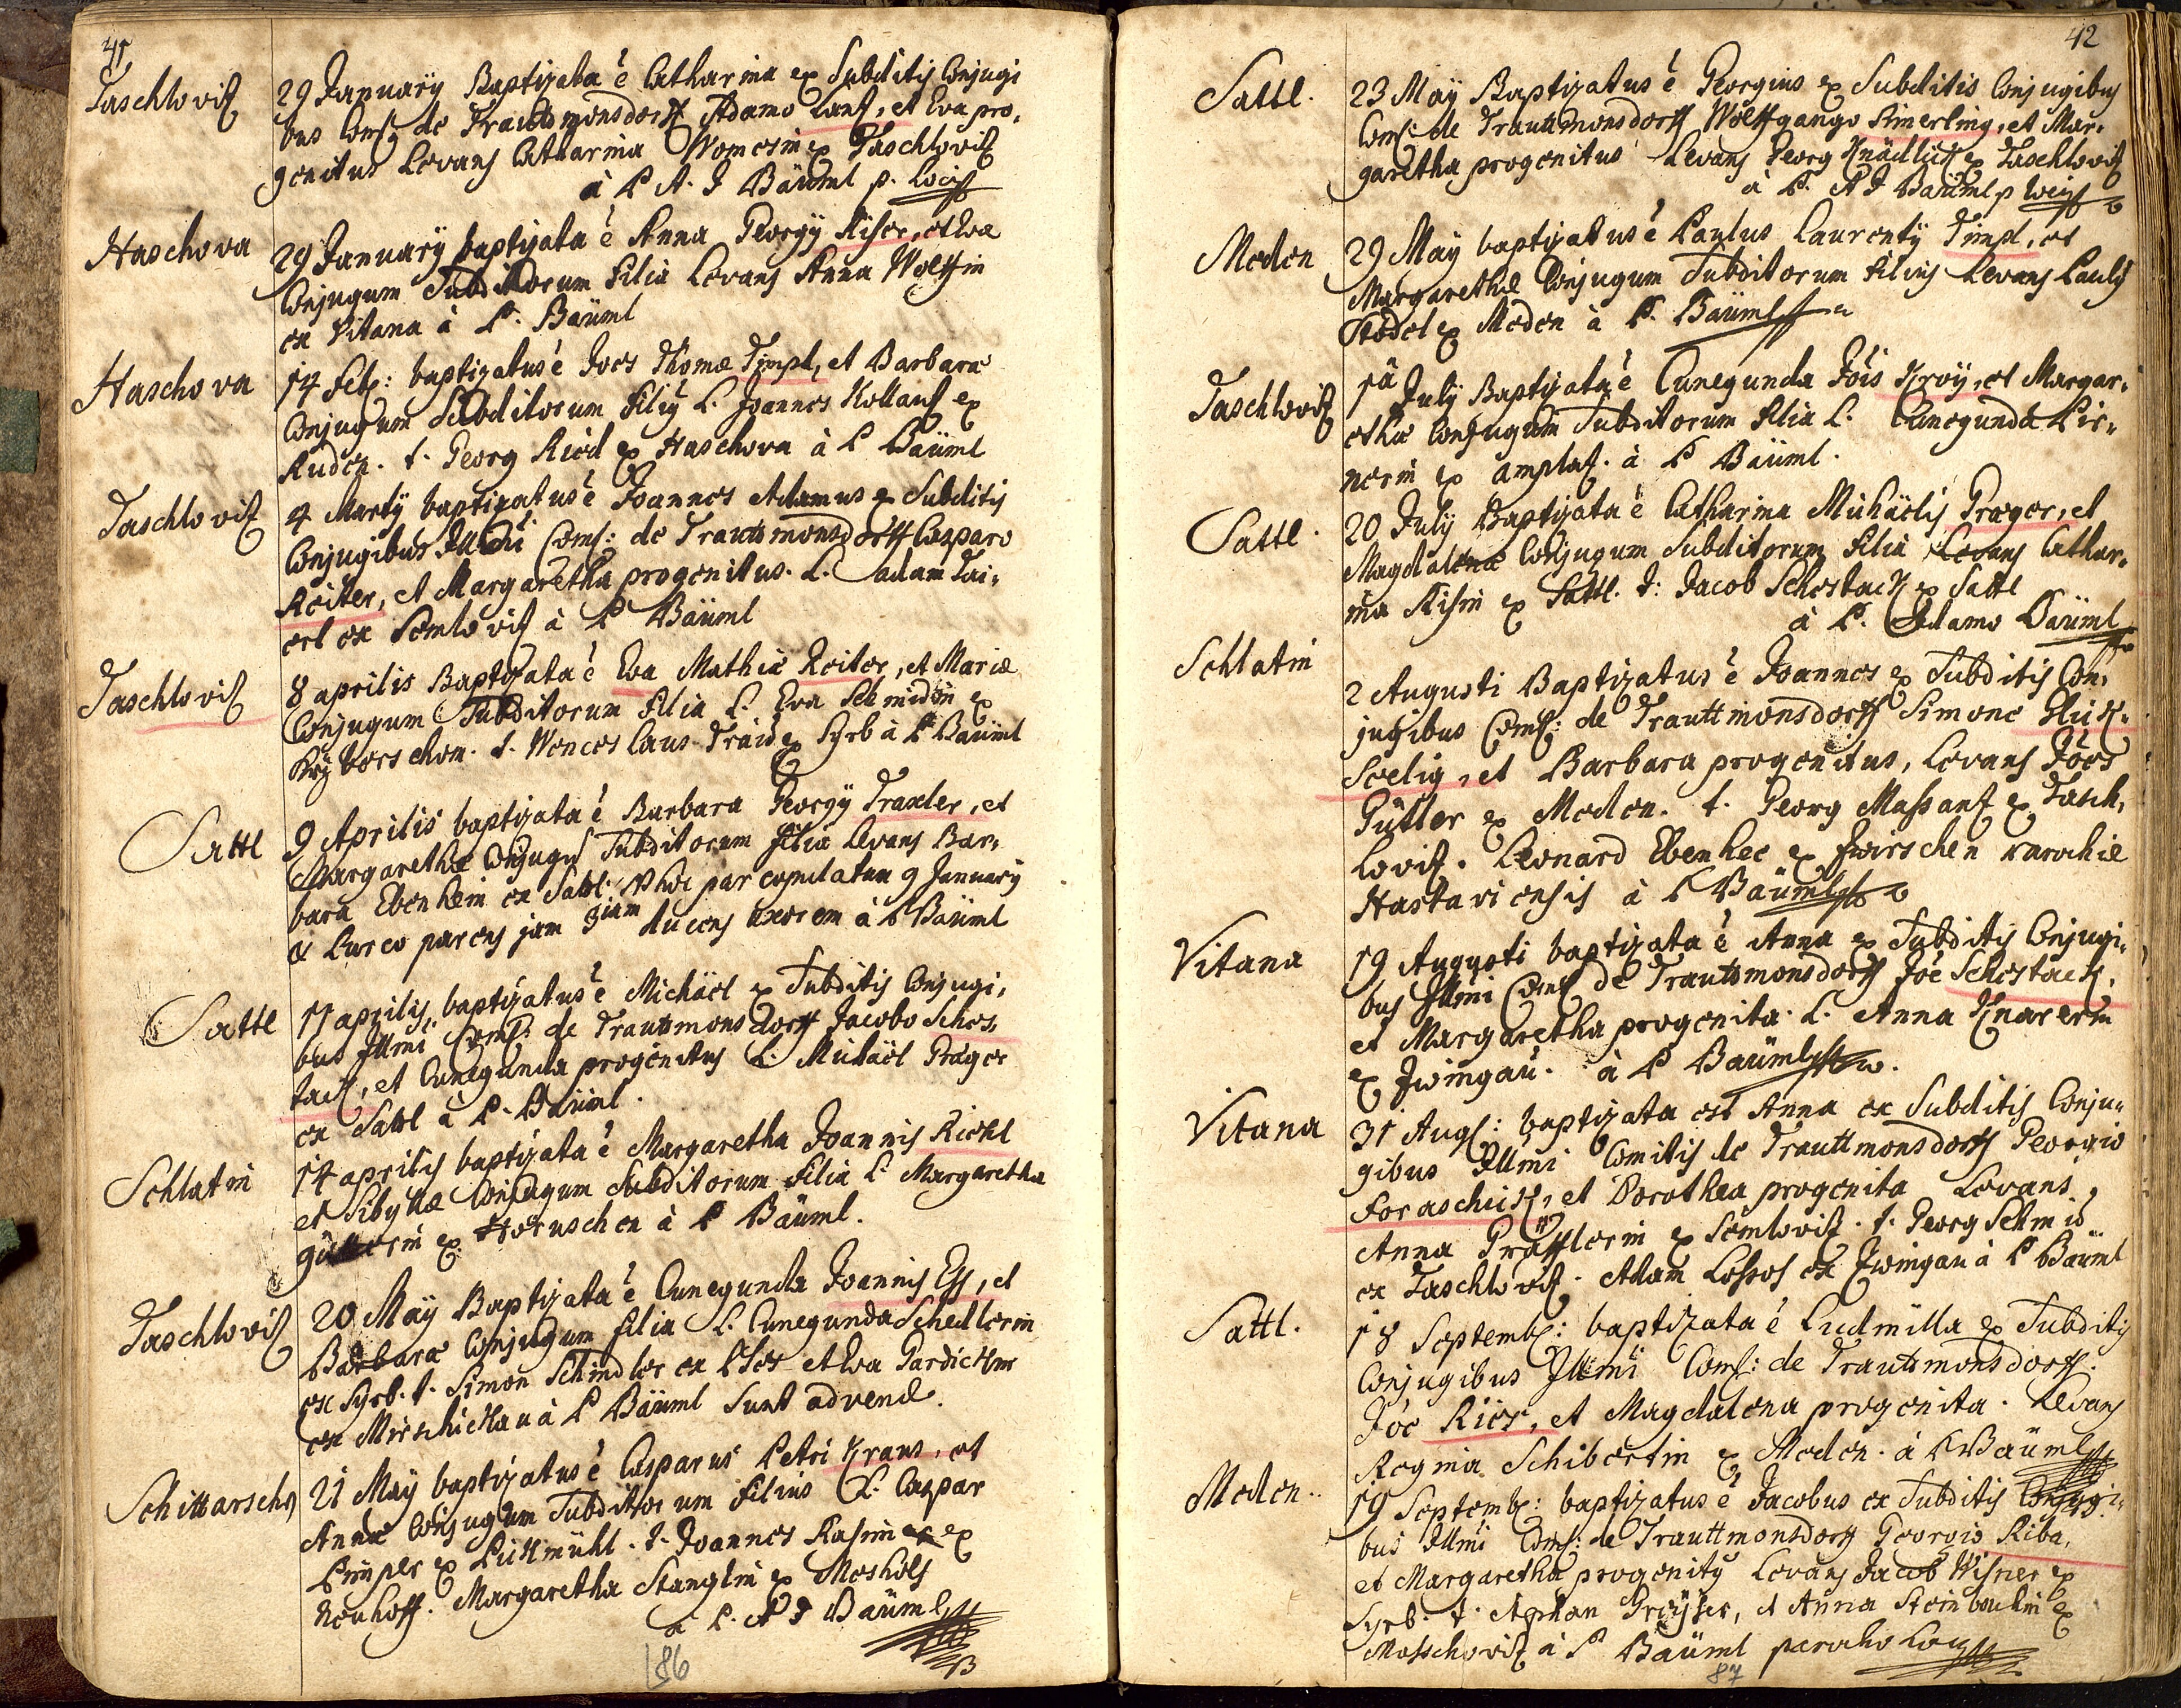 41
Taschlovitz
29 Januarÿ Baptizata ē Catharina ex Subditis Conjugi
bus Coms de Trauttmonsdorff Adamo Lantz, et Eva pro,
genitus Levans Catharina ex Taschlovitz
à P. A. J Bäüml p. Loci
Haschova
29 Januarÿ baptizata ē Anna Georgÿ Riser, et Evæ
Conjugum Subditorum Filia Levans Anna Wolffin
ex Vitana à P. Bäüml
Haschova
14 Feb: baptizatus ē Joes Thomæ Timpl, et Barbaræ
Conjugum Subditorum Filius L. Joannes Kollantz ex
Ruden. t. Georg Ried ex Haschova à P Bäüml
Taschlovitz
4 Martÿ baptizatus ē Joannes Adamus ex Subditis
Conjugibus Illmi Coms: de Trauttmonsdorff Casparo
Roiter, et Margaretha progenitus. L. Adam Tai,
erl ex Semlovitz à P Bäüml
Taschlovitz
8 aprilis Baptizata ē Eva Mathiæ Roiter, et Mariæ
Conjugum Subditorum Filia L. Eva Schmidin ex
t. Wenceslaus Traid ex Syrb à P Bäüml
Sattl
9 Aprilis baptizata ē Barbara Georgÿ Traxler, et
Margarethæ Conjugum Subditorum filia Levans Bar,
bara Ebenhein ex Sattl. hoc par copulatum 9 Januarÿ
parens jam 3iam ducens uxorem à P Bäüml
Sattl
11 aprilis baptizatus ē Michäel ex Subditis Conjugi,
bus Illmi Coms: de Trauttmonsdorff Jacobo Schos,
tack, et Cunegunda progenitus L. Michäel Prager
ex Sattl à P. Bäüml.
Schlatin
14 aprilis baptizata ē Margaretha Joannis Richl
et Sibyllæ Conjugum Subditorum Filia L. Margaretha
ex Horuschen à P Bäüml.
Taschlovitz
20 Maÿ Baptizata ē Cunegunda Joannis Ess, et
Barbaræ Conjugum filia L. Cunegunda Schedlerin
ex Syrb. t. Simon Schindler ex et Eva
ex Mirschickau à P Bäüml Sunt advenæ.
Schittarschn
21 Maÿ baptizatus ē Casparus Petri Kraus, et
Annæ Conjugum Subditorum filius L. Caspar
Pimper ex Pickmühl. t. Joannes Rasim ex
Neuhoff. Margaretha Stanglin ex Mosholf
à P. A J Bäüml
186
42
Sattl.
23 Maÿ Baptizatus ē Georgius ex Subditis Conjugibus
Coms: de Trauttmonsdorff Wolffgango Simerling, et Mar,
garetha progenitus Levans Georg Knädlick ex Taschlovitz
à P. A J Bäüml p Loci
Meden
29 Maÿ baptizatus ē Paulus Laurentÿ Timpl, et
Margarethæ Conjugum Subditorum filius Levans Paulus
ex Meden à P. Bäüml
Taschlovitz
1â Julÿ Baptizata ē Cunegunda Jōis Kroÿ, et Margar,
ethæ Conjugum Subditorum filia L. Cunegunda Pir,
nerin ex amplatz. à P Bäüml.
Sattl.
20 Julÿ Baptizata ē Catharina Michäelis Prager, et
Magdalenæ Conjugum Subditorum filia Levans Cathar,
ina Risin ex Sattl. t: Jacob Schostack ex Sattl
à P. Adamo Bäüml
Schlatin
2 Augusti Baptizatus ē Joannes ex Subditis Con,
jugibus Coms: de Trauttmonsdorff Simone Glick,
seelig, et Barbara progenitus, Levans Jōes
Güttler ex Meden. t. Georg Massantz ex Tasch,
lovitz. Leonard Ebenhec ex Zwirschen Parochiæ
Hostaviensis à P Bäüml
Vitana
19 Augusti baptizata ē Anna ex Subditis Conjugi,
bus Illmi Coms de Trauttmonsdorff Jōe Schostack,
et Margaretha progenita. L. Anna Knarerin
ex Zwingau. à P Bäüml
Vitana
31 Aug: baptizata est Anna ex Subditis Conju,
gibus Illmi Comitis de Trauttmonsdorff Georgio
Foraschick, et Dorothea progenita Levans,
Anna Präfflerin ex Semlovitz. t. Georg Schmid
ex Taschlovitz. Adam ex Zwingau à P Bäüml
Sattl.
18 Septemb: baptizata ē Ludmilla ex Subditis
Conjugibus Illmi Coms: de Trauttmonsdorff.
Jōe Rier, et Magdalena progenita. Levans
Regina Schibertin ex Meden. à P Bäüml
Meden..
19 Septemb: baptizatus ē Jacobus ex Subditis Conjugi,
bus Illmi Coms: de Trauttmonsdorff Georgio Riba,
et Margaretha progenitus Levans Jacob Wisner ex
Syrb. t. Stephan et Anna Steinbachin ex
à P Bäüml parocho Loci
87